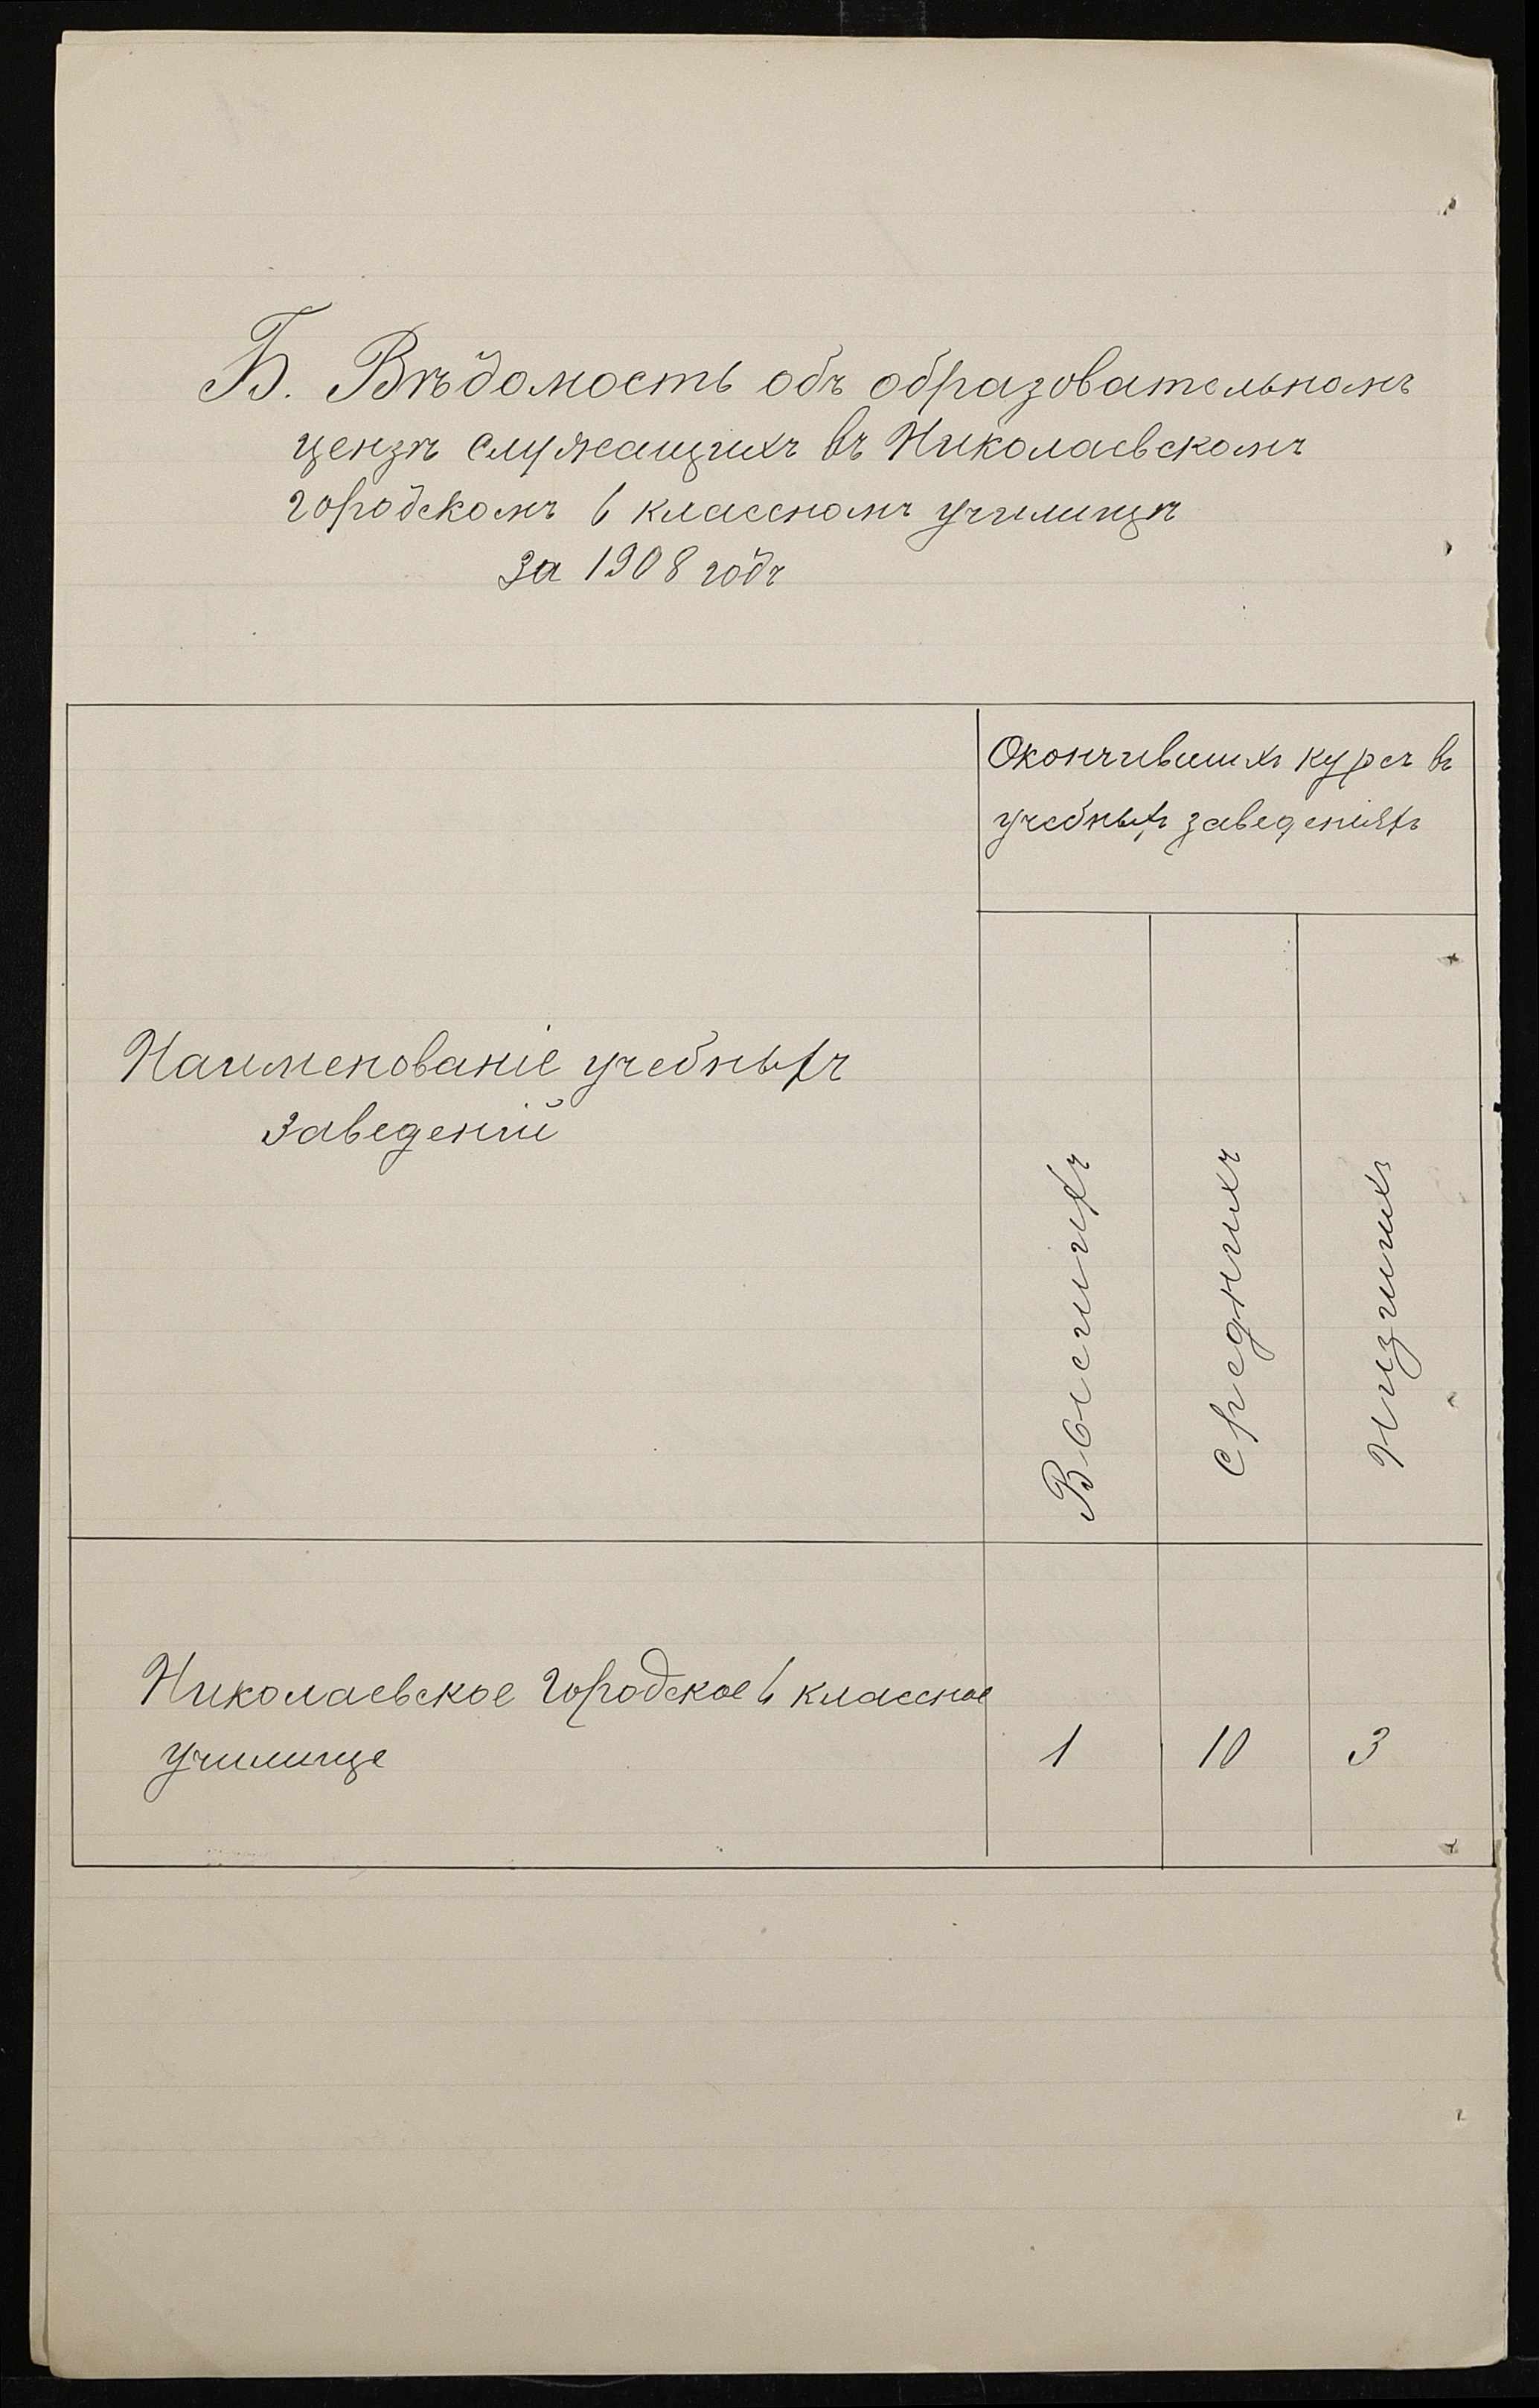 Б. Вѣдомость объ образовательномъ
цензѣ служащихъ въ Николаевскомъ
городскомъ 6 классномъ училищѣ
за 1908 годъ
Окончившихъ курсъ въ
учебныхъ заведеніяхъ
Наименованіе учебныхъ
заведеній
Высшихъ
среднихъ
низшихъ
Николаевское городское 6 классное
училище
1 10 3